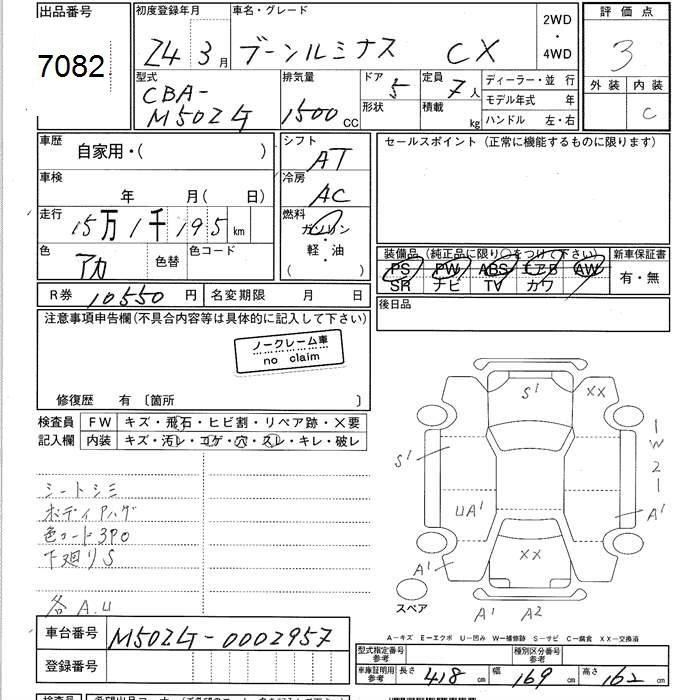 出品番号
7082
初度登録年月
車名・グレード
24 3月 ブーンルミナス CX
2WD
・
4WD
評価点
3
外装 内装
C
型式
CBA-
M502G
排気量
1500 CC
ドア 5
形状
定員 7人
積載 kg
ディーラー・並行
モデル年式 年
ハンドル 左・右
車歴
自家用・( )
車検
年 月( 日)
走行
15万1千195km
色
アカ
色替
色コード
シフト
AT
冷房
AC
燃料
ガソリン
・
軽・油
( )
セールスポイント(正常に機能するものに限ります)
装備品(純正品に限り○をつけて下さい)
PS PW ABS エアB AW
SR ナビ TV カワ
新車保証書
有・無
R券 10550円
名変期限 月 日
後日品
注意事項申告欄(不具合内容等は具体的に記入して下さい)
ノークレーム車
no claim
修復歴 有〔箇所 〕
検査員
記入欄
FW キズ・飛石・ヒビ割・リペア跡・×要
内装 キズ・汚レ・コゲ・穴・スレ・キレ・破レ
シートシミ
ボディハゲ
色コード3P0
下廻りS
各A.U
S1
XX
S1
1
W
2
1
UA1
A1
XX
A1
スペア
A1 A2
A-キズ E-エクボ U-凹み W-補修跡 S-サビ C-腐食 XX-交換済
車台番号
M502G-0002957
登録番号
型式指定番号
参考
種別区分番号
参考
車庫証明用
参考
長さ 418 幅 169 高さ 162